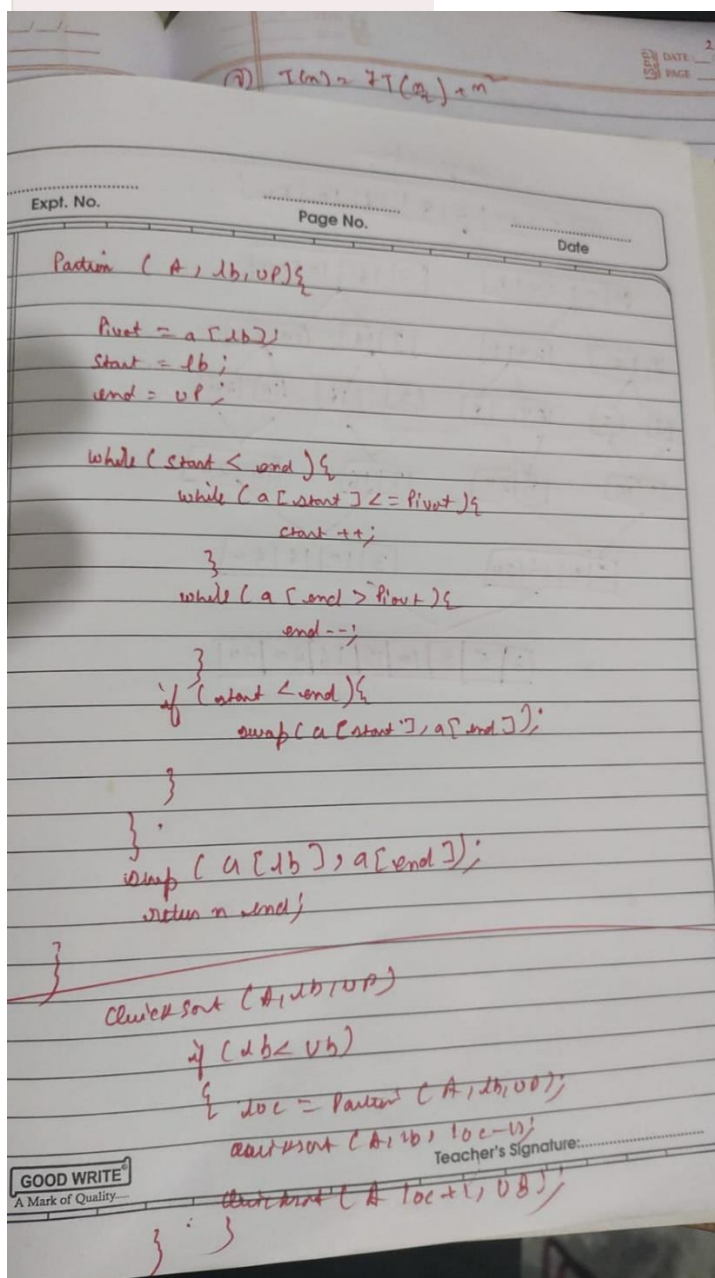 2
DATE
PAGE
(7) T(n) = 7T(n/2) + n²
Expt. No.
Page No.
Date
Partion ( A, lb, UP){
Pivot = a[lb];
start = lb;
end = UP;
while ( start < end ){
while ( a[start] <= Pivot ){
start ++;
}
while ( a [ end > Piovt ){
end --;
}
if ( start < end ){
swap( a [start], a[end]);
}
}
swap ( a [lb], a[end]);
return end;
}
Quicksort (A, lb, UP)
if ( lb < Ub)
{ loc = Partion ( A, lb, UP);
Quicksort (A, lb, loc-1);
Teacher's Signature:
GOOD WRITE
A Mark of Quality.....
Quicksort ( A loc +1, UB);
}
}